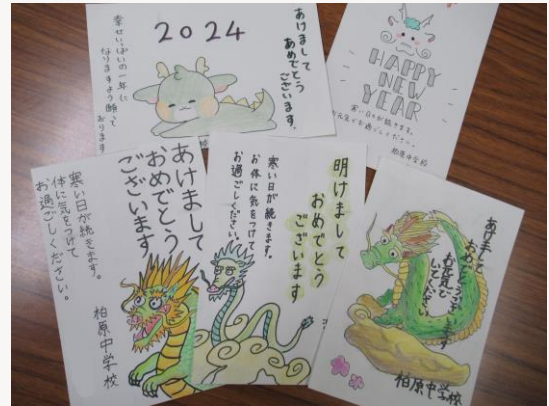 2024
あけまして
おめでとう
ございます。
幸せいっぱいの一年に
なりますよう願って
おります
HAPPY
NEW
YEAR
寒い日が続きます。
お元気でお過ごしください。
柏原中学校
あけまして
おめでとう
ございます
寒い日が続きます。
体に気をつけて
お過ごしください。
柏原中学校
明けまして
おめでとう
ございます
寒い日が続きます。
お体に気をつけて
お過ごしください。
あけまして
おめでとうございます
お元気で
いてください
柏原中学校